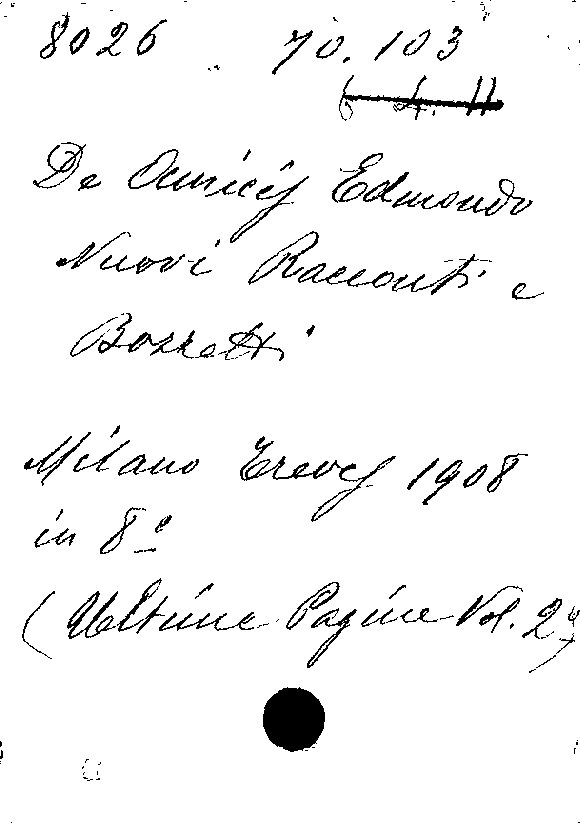 8026 70.103
6 4. 11
De Amicis Edmondo
Nuovi Racconti e
Bozzetti
Milano Treves 1908
in 8º
(Ultime Pagine Vol. 2º)